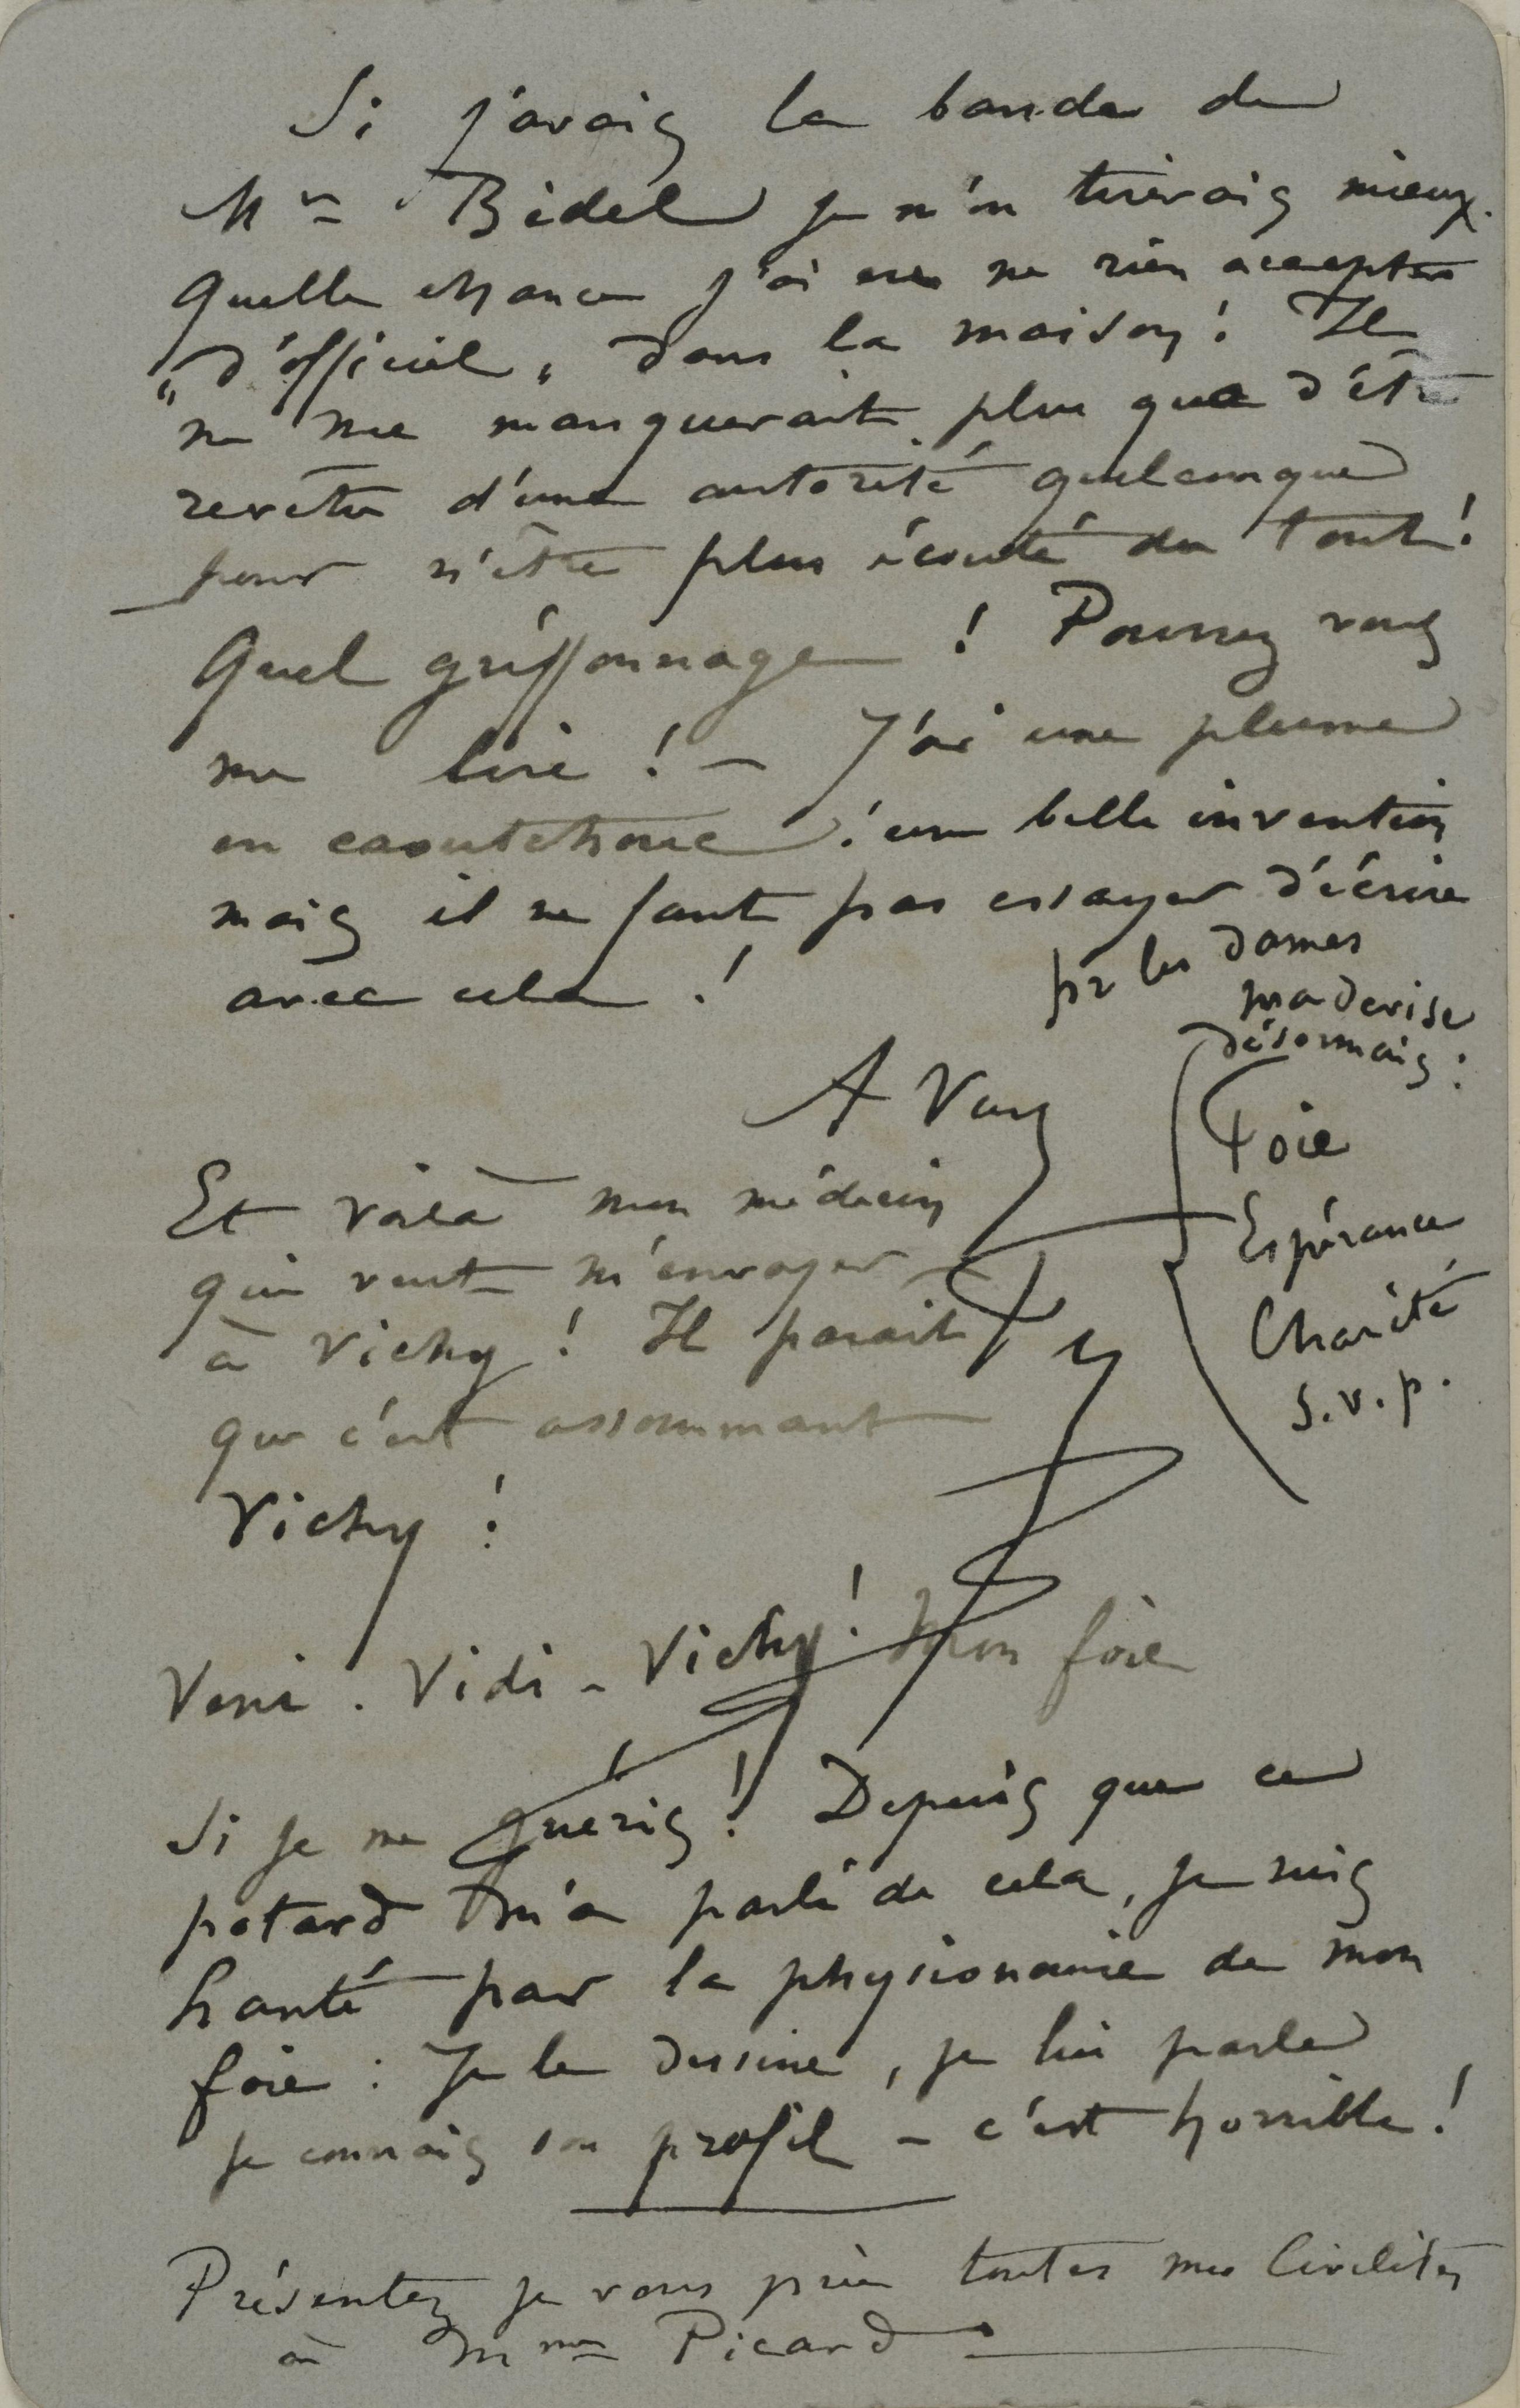 Si j'avais la bande de
Mr Bidel je m'en tirerais mieux.
Quelle chance j'ai eu ne rien accepter
"d'officiel" dans la maison! Il
ne me manquerait plus que d'être
revêtu d'une autorité quelconque
pour n'être plus écouté du tout!
Quel griffonnage ! Pourrez vous
me lire ! — J'ai une plume
en caoutchouc : une belle invention
mais il ne faut pas essayer d'écrire
avec cela !
A Vous
pr les dames
ma devise
désormais :
Foie
Espérance
Charité
s.v.p.
Et voilà mon médecin
qui veut m'envoyer
à Vichy ! Il parait
que c'est assommant
Vichy !
Veni . Vidi - Vichy ! Mon foie
Si je me guéris ! Depuis que ce
potard m'a parlé de cela, je suis
hanté par la physionomie de mon
foie : Je le dessine, je lui parle
je connais son profil — c'est horrible !
Présentez je vous prie toutes mes Civilités
à Mme Picard